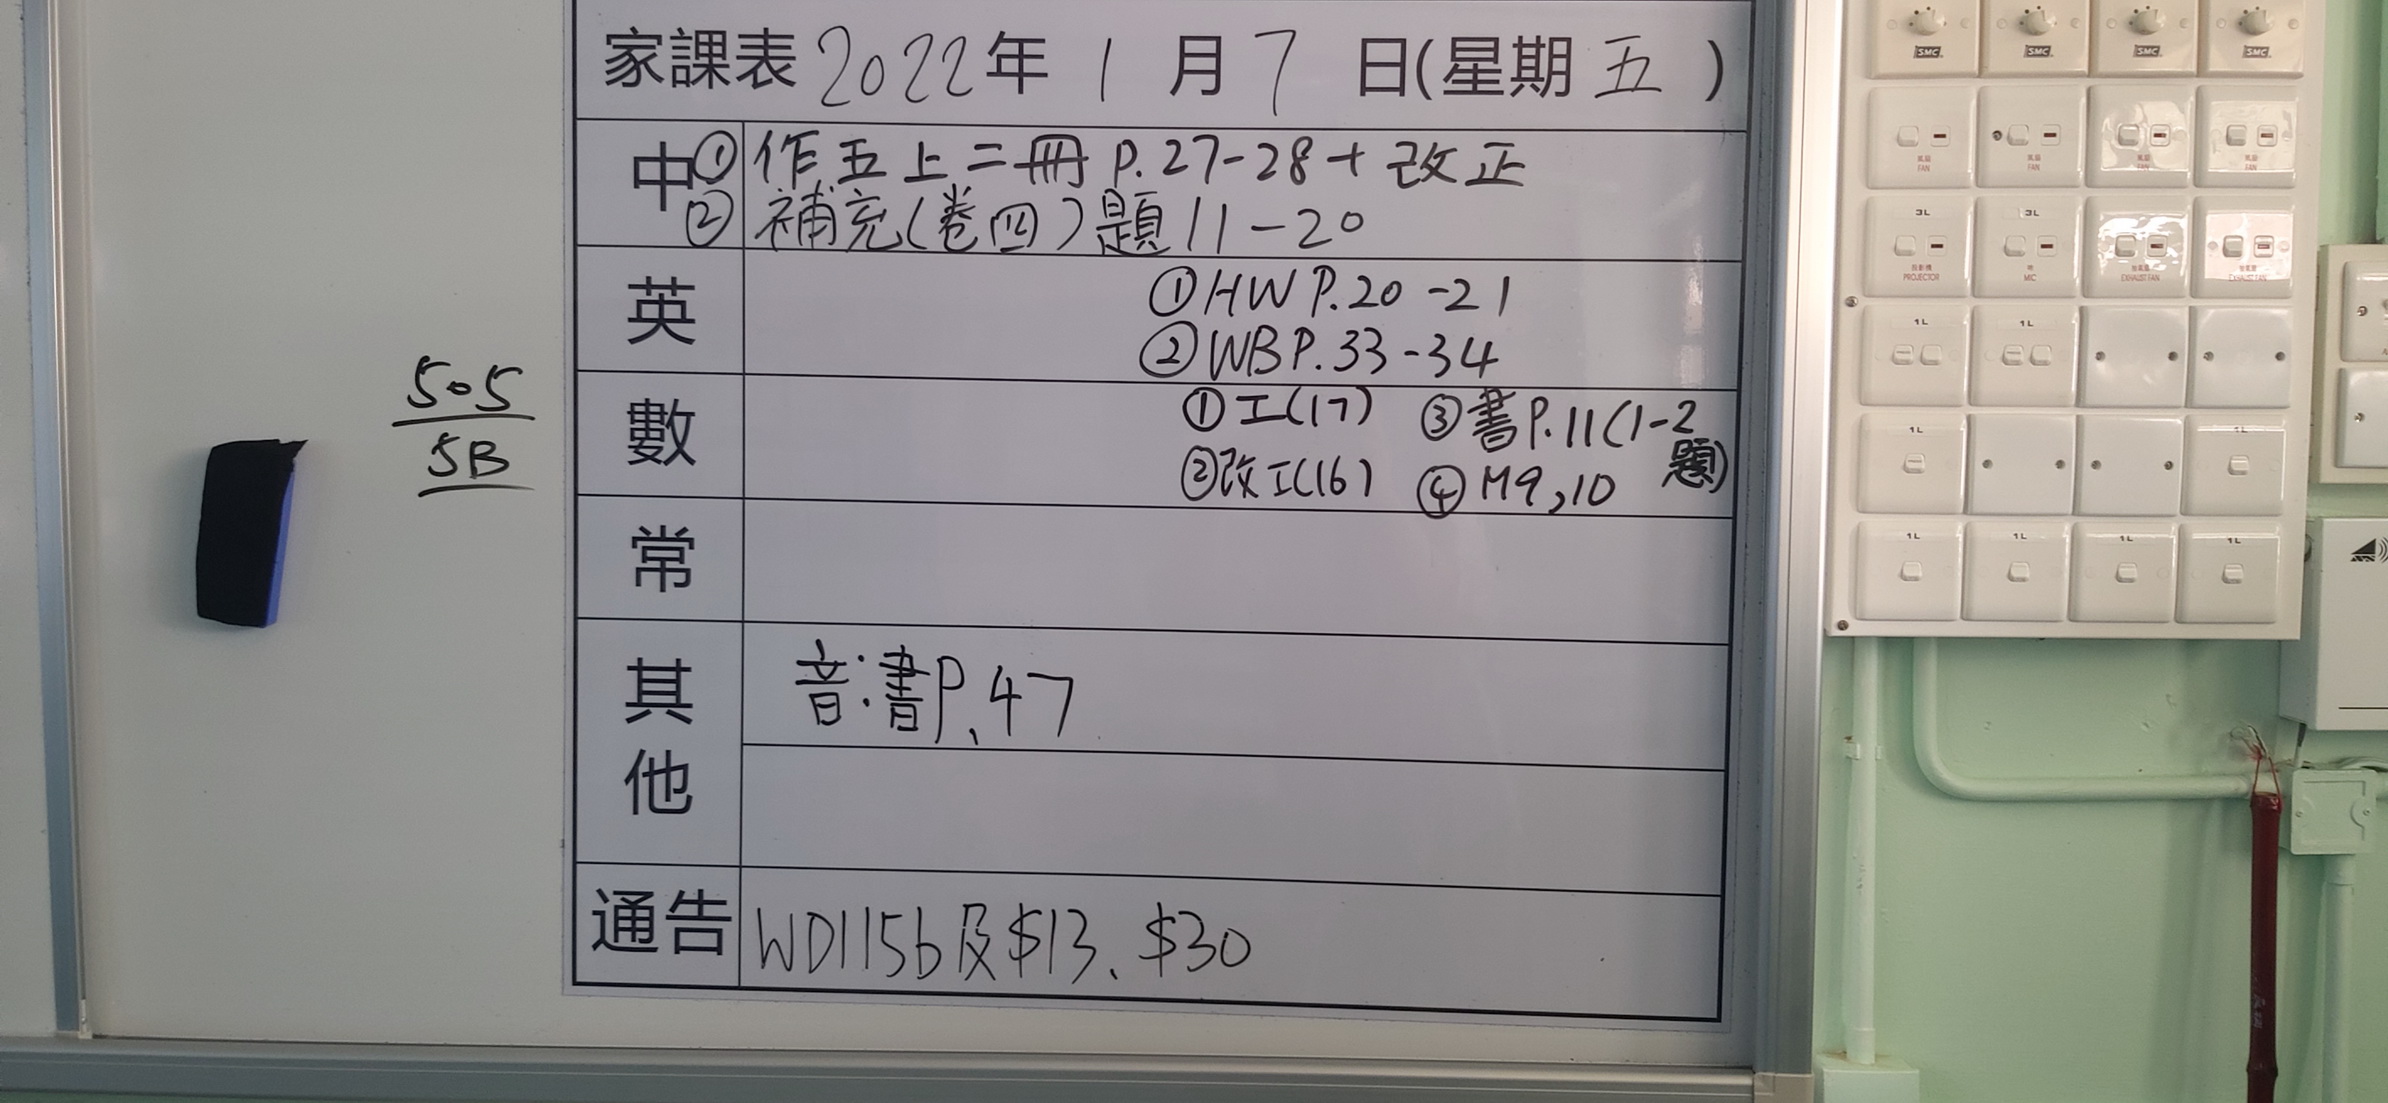 家課表 2022年 1 月 7 日(星期 五 )
中 ① 作五上二冊 P.27-28+改正
② 補充(卷四)題11-20
英 ①HW P.20-21
②WB P.33-34
505
5B
數 ①工(17) ③書P.11(1-2題)
②改工(16) ④M9,10
常
其他 音:書P.47
通告 WD115b及$13、$30
SMC SMC SMC SMC
風扇 風扇 風扇 風扇
FAN FAN FAN FAN
3L 3L
投影機 咪 抽氣扇 抽氣扇
PROJECTOR MIC EXHAUST FAN EXHAUST FAN
1L 1L
1L 1L
1L 1L 1L 1L